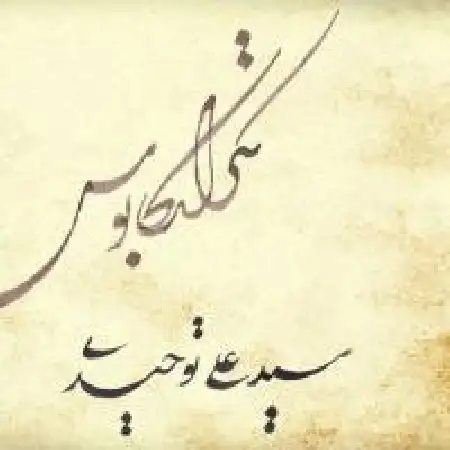 تکرار کابوس
سید علی توحیدی